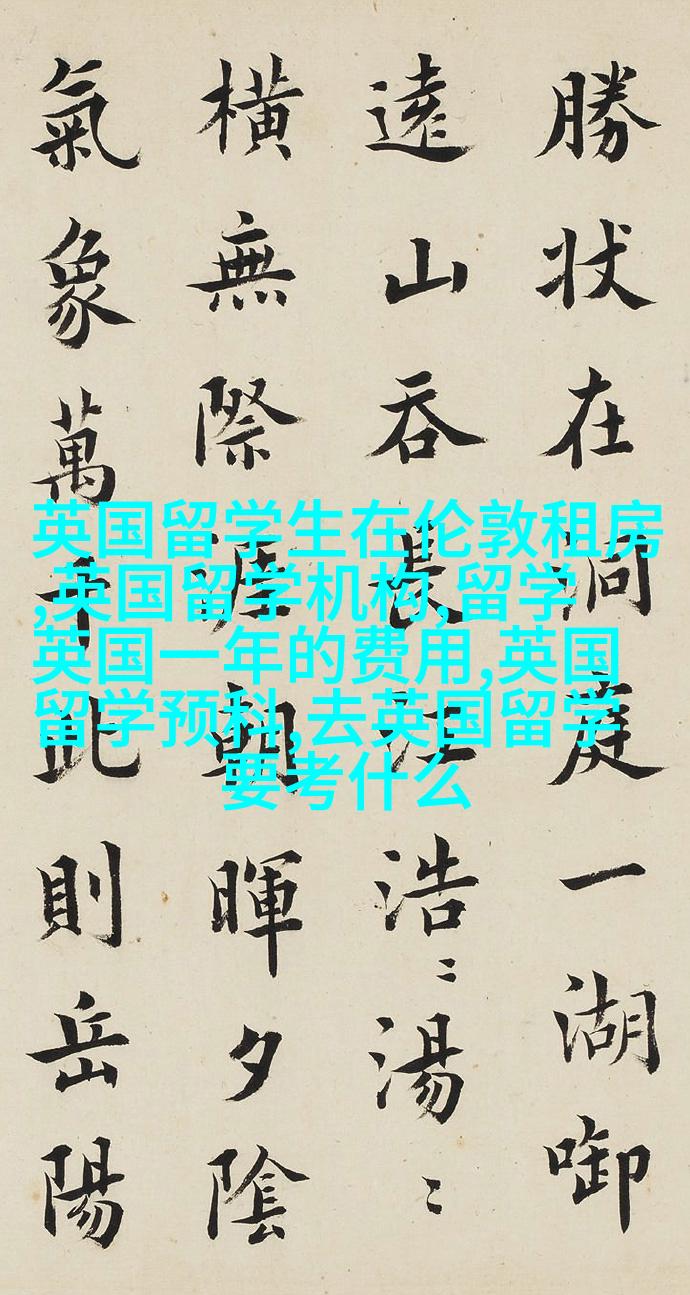 勝状在洞庭一湖啣
遠山吞長江浩〻湯〻
横無際涯朝暉夕陰
氣象萬千此則岳陽
英国留学生在伦敦租房
,英国留学机构,留学
英国一年的费用,英国
留学预科,去英国留学
要考什么